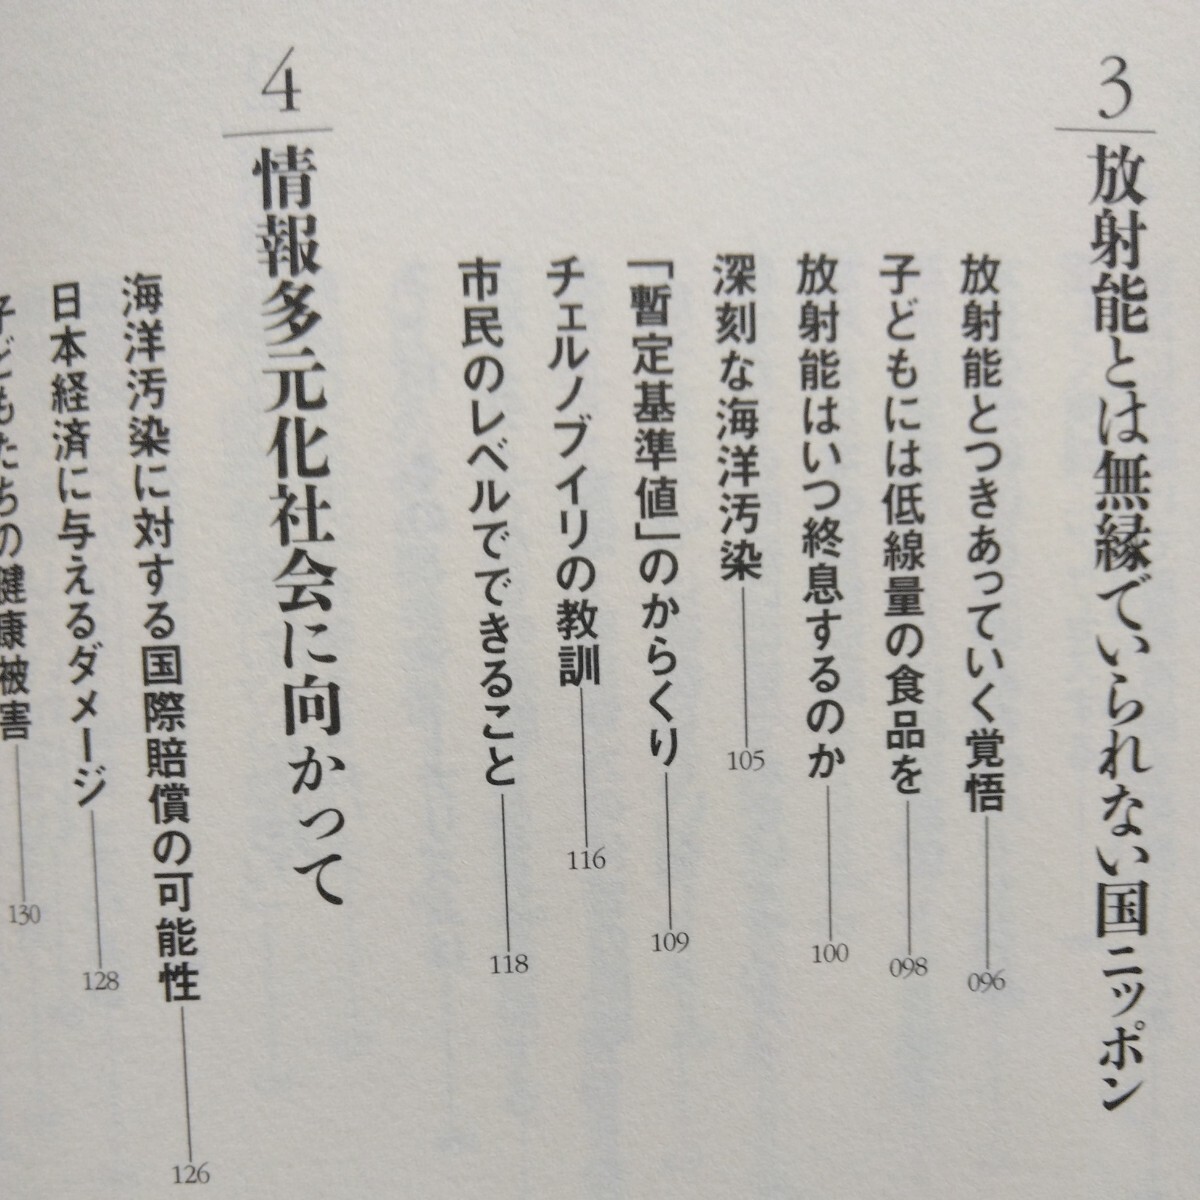 3
放射能とは無縁でいられない国ニッポン
放射能とつきあっていく覚悟
096
子どもには低線量の食品を
098
放射能はいつ終息するのか
100
深刻な海洋汚染
105
「暫定基準値」のからくり
109
チェルノブイリの教訓
116
市民のレベルでできること
118
4
情報多元化社会に向かって
海洋汚染に対する国際賠償の可能性
126
日本経済に与えるダメージ
128
子どもたちの健康被害
130